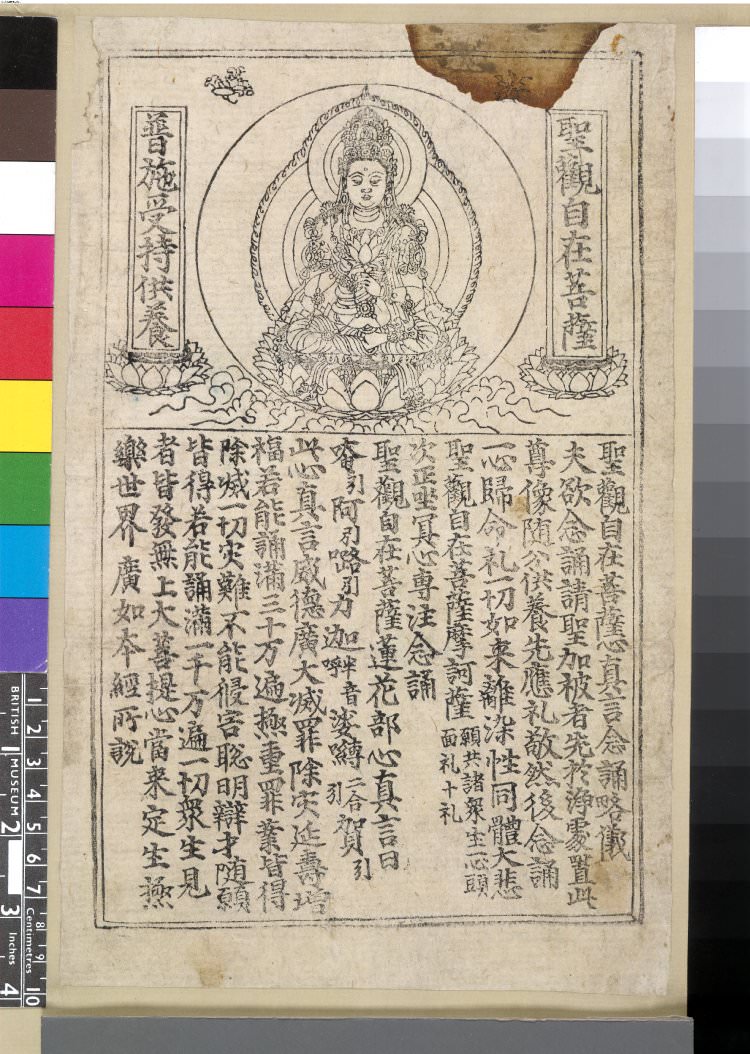 聖觀自在菩薩
普施受持供養
聖觀自在菩薩心真言念誦略儀
夫欲念誦請聖加被者先於淨處置此
尊像随分供養先應礼敬然後念誦
一心歸命礼一切如来離染性同體大悲
聖觀自在菩薩摩訶薩 願共諸衆生一心頭面礼十礼
次正坐冥心專注念誦
聖觀自在菩薩蓮花部心真言曰
唵引阿引嚕引力迦半音呼娑嚩二合引賀引
此心真言威德廣大滅罪除灾延壽增
福若能誦滿三十万遍極重罪業皆得
除滅一切灾難不能侵害聡明辯才随願
皆得若能誦滿一千万遍一切衆生見
者皆發無上大菩提心當来定生極
樂世界廣如本經所說
BRITISH MUSEUM
1 2 3 4 5 6 7 8 9 10
Centimetres
1 2 3 4
Inches